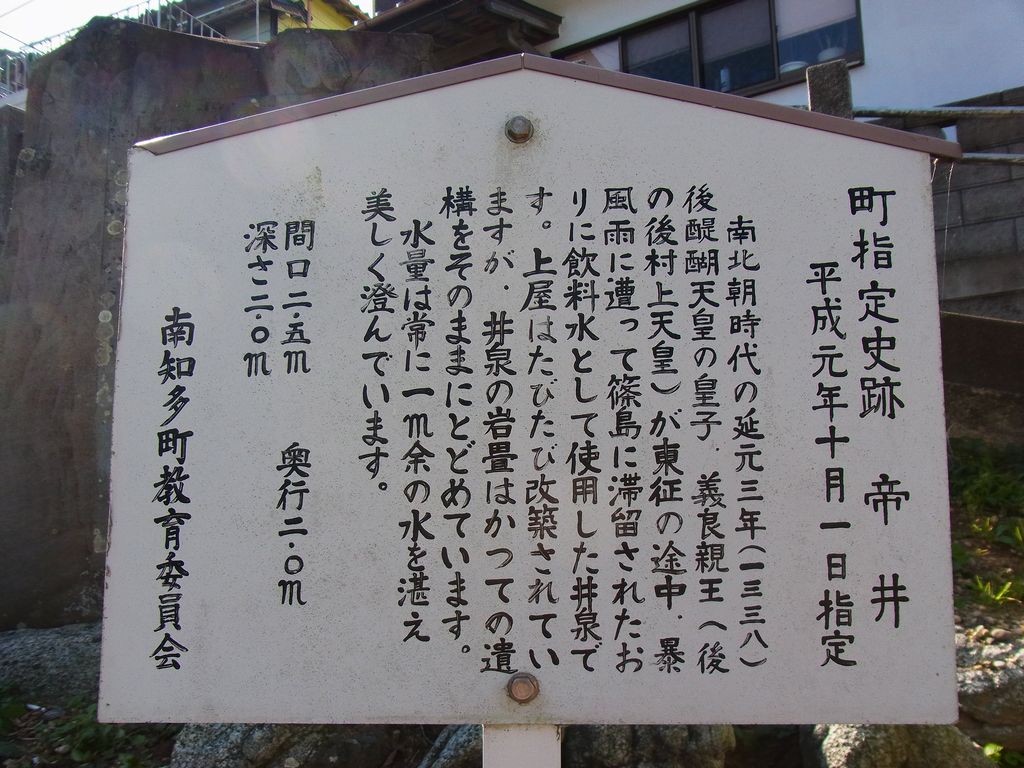 町指定史跡　帝井
平成元年十月一日指定
南北朝時代の延元三年(一三三八)
後醍醐天皇の皇子．義良親王(後
の後村上天皇)が東征の途中．暴
風雨に遭って篠島に滞留されたお
りに飲料水として使用した井泉で
す。上屋はたびたび改築されてい
ますが．井泉の岩畳はかつての遺
構をそのままにとどめています。
水量は常に一m余の水を湛え
美しく澄んでいます。
間口二．五m　奥行二．〇m
深さ二．〇m
南知多町教育委員会